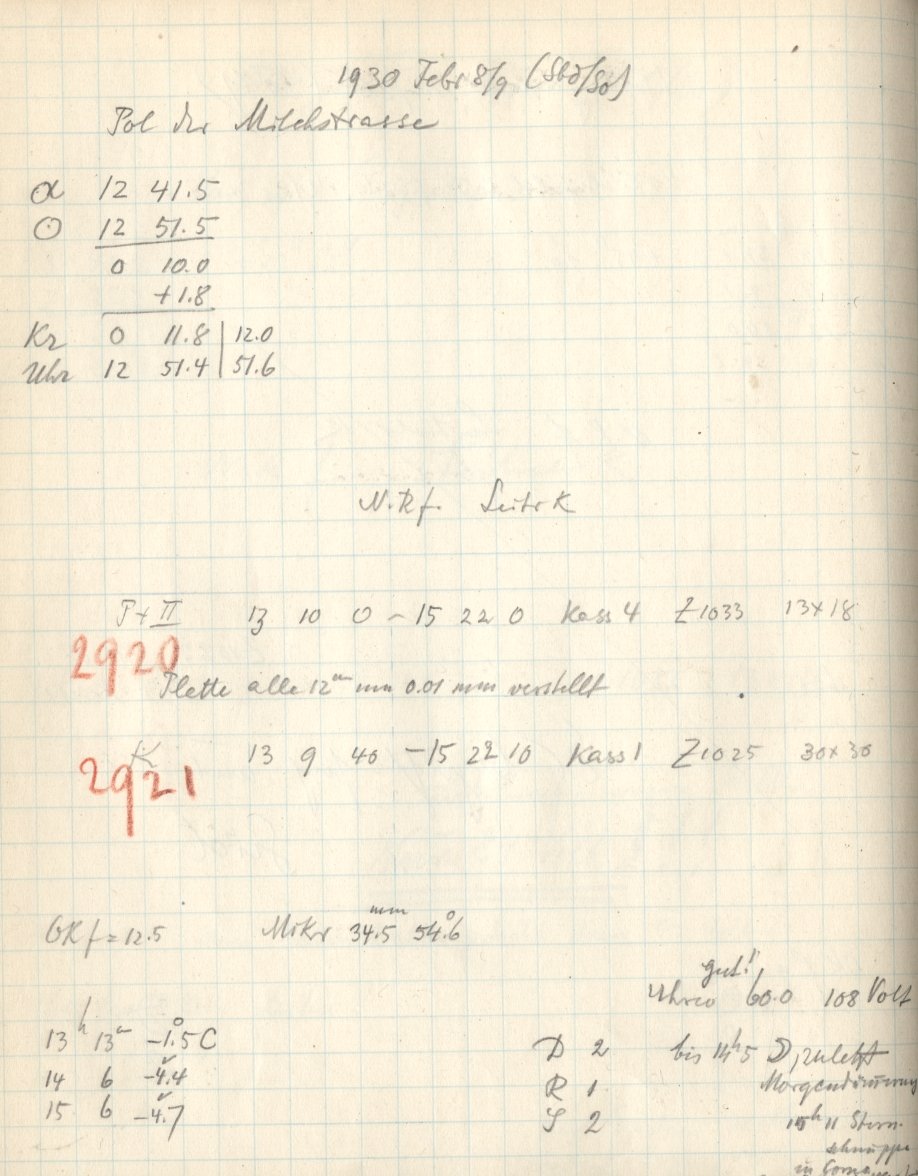 1930 Febr 8/9 (Sbd/So)
Pol der Milchstrasse
α 12 41.5
☉ 12 51.5
0 10.0
+1.8
Kr 0 11.8 | 12.0
Uhr 12 51.4 | 51.6
N. Rf. Leitr K
P+II 13 10 0 – 15 22 0 Kass 4 Z1033 13x18
2920
Platte alle 12m um 0.01 mm verstellt
K 13 9 40 – 15 22 10 Kass 1 Z1025 30x30
2921
OKf = 12.5 Mikr 34.5mm 54.6°
gut!
Uhren 60.0 108 Volt
13h 13m –1.5°C
D 2 bis 14h5 D, zuletzt
14 6 –4.4
R 1 Morgendämmerung
15 6 –4.7
S 2 15h 11 Stern-
schnuppe
in Coma